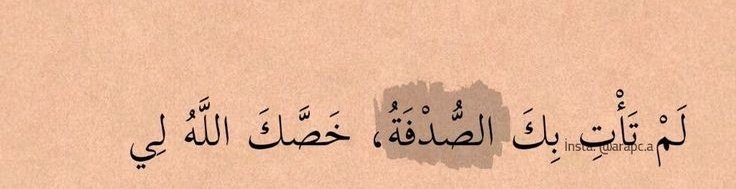 لَمْ تَأْتِ بِكَ الصُّدْفَةُ، خَصَّكَ اللَّهُ لِي
insta: @arapc.a